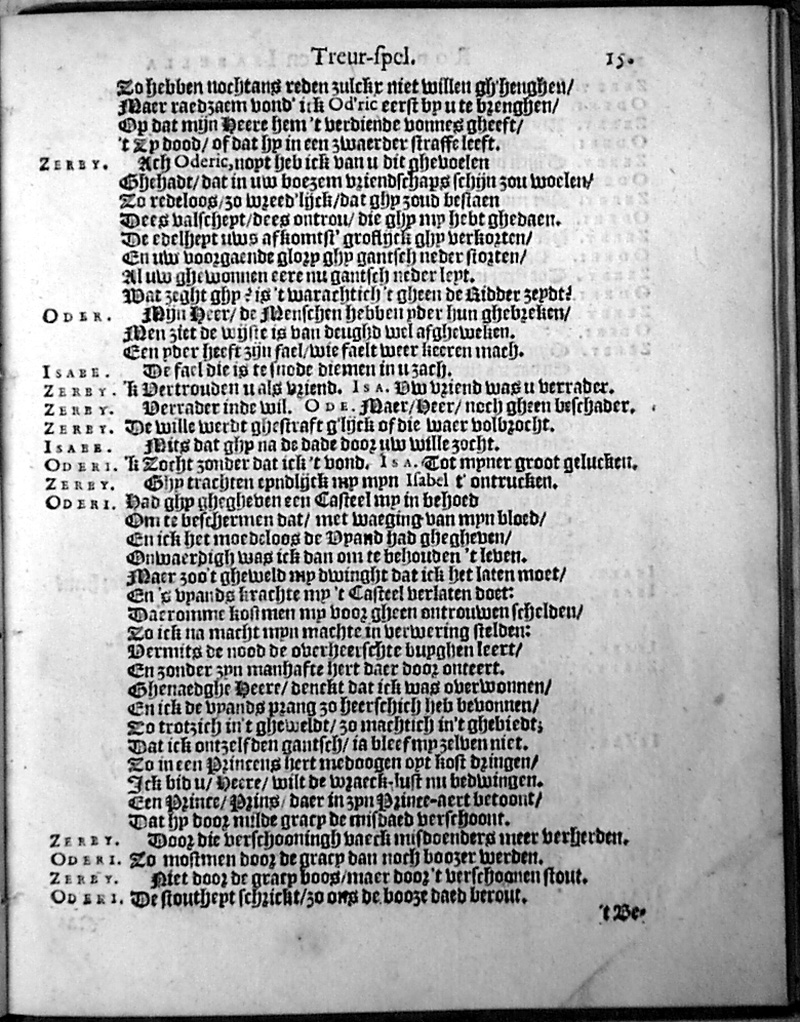 Treur-spel. 15.
Zo hebben nochtans reden zulckx niet willen gh'henghen/
Maer raedzaem vond' ick Od'ric eerst by u te brenghen/
Op dat mijn Heere hem 't verdiende vonnes gheeft/
't Zy dood/ of dat hy in een zwaerder straffe leeft.
ZERBY. Ach Oderic, noyt heb ick van u dit ghevoelen
Ghehadt/ dat in uw boezem vriendschaps schijn zou woelen/
Zo redeloos/ zo wreed'lijck/ dat ghy zoud bestaen
Dees valscheyt/ dees ontrou/ die ghy my hebt ghedaen.
De edelheyt uws afkomst' groflijck ghy verkorten/
En uw voorgaende glory ghy gantsch neder storten/
Al uw ghewonnen eere nu gantsch neder leyt.
Wat zeght ghy? is 't warachtich 't gheen de Ridder zeydt?
ODER. Mijn Heer/ de Menschen hebben yder hun ghebreken/
Men ziet de wijste is van deughd wel afgheweken.
Een yder heeft zijn fael/ wie faelt weer keeren mach.
ISABE. De fael die is te snode diemen in u zach.
ZERBY. 'k Vertrouden u als vriend. ISA. Uw vriend was u verrader.
ZERBY. Verrader inde wil. ODE. Maer/ Heer/ noch gheen beschader.
ZERBY. De wille werdt ghestraft g'lijck of die waer volbrocht.
ISABE. Mits dat ghy na de dade door uw wille zocht.
ODERI. 'k Zocht zonder dat ick 't vond. ISA. Tot myner groot gelucken.
ZERBY. Ghy trachten eyndlijck my myn Isabel t' ontrucken.
ODERI. Had ghy ghegheven een Casteel my in behoed
Om te beschermen dat/ met waeging van myn bloed/
En ick het moedeloos de Vyand had ghegheven/
Onwaerdigh was ick dan om te behouden 't leven.
Maer zoo't gheweld my dwinght dat ick het laten moet/
En 's vyands krachte my 't Casteel verlaten doet:
Daeromme kostmen my voor gheen ontrouwen schelden/
Zo ick na macht myn machte in verwering stelden:
Vermits de nood de overheerschte buyghen leert/
En zonder zyn manhafte hert daer door onteert.
Ghenaedghe Heere/ denckt dat ick was overwonnen/
En ick de vyands prang zo heerschich heb bevonnen/
Zo trotzich in't gheweldt/ zo machtich in't ghebiedt;
Dat ick ontzelfden gantsch/ ja bleef my zelven niet.
Zo in een Princens hert medoogen oyt kost dringen/
Ick bid u/ Heere/ wilt de wraeck-lust nu bedwingen.
Een Prince/ Prins/ daer in zyn Prince-aert betoont/
Dat hy door milde gracy de misdaed verschoont.
ZERBY. Door die verschooningh vaeck misdoenders meer verherden.
ODERI. Zo mostmen door de gracy dan noch boozer werden.
ZERBY. Niet door de gracy boos/ maer door't verschoonen stout.
ODERI. De stoutheyt schrickt/ zo ons de booze daed berout.
't Be-